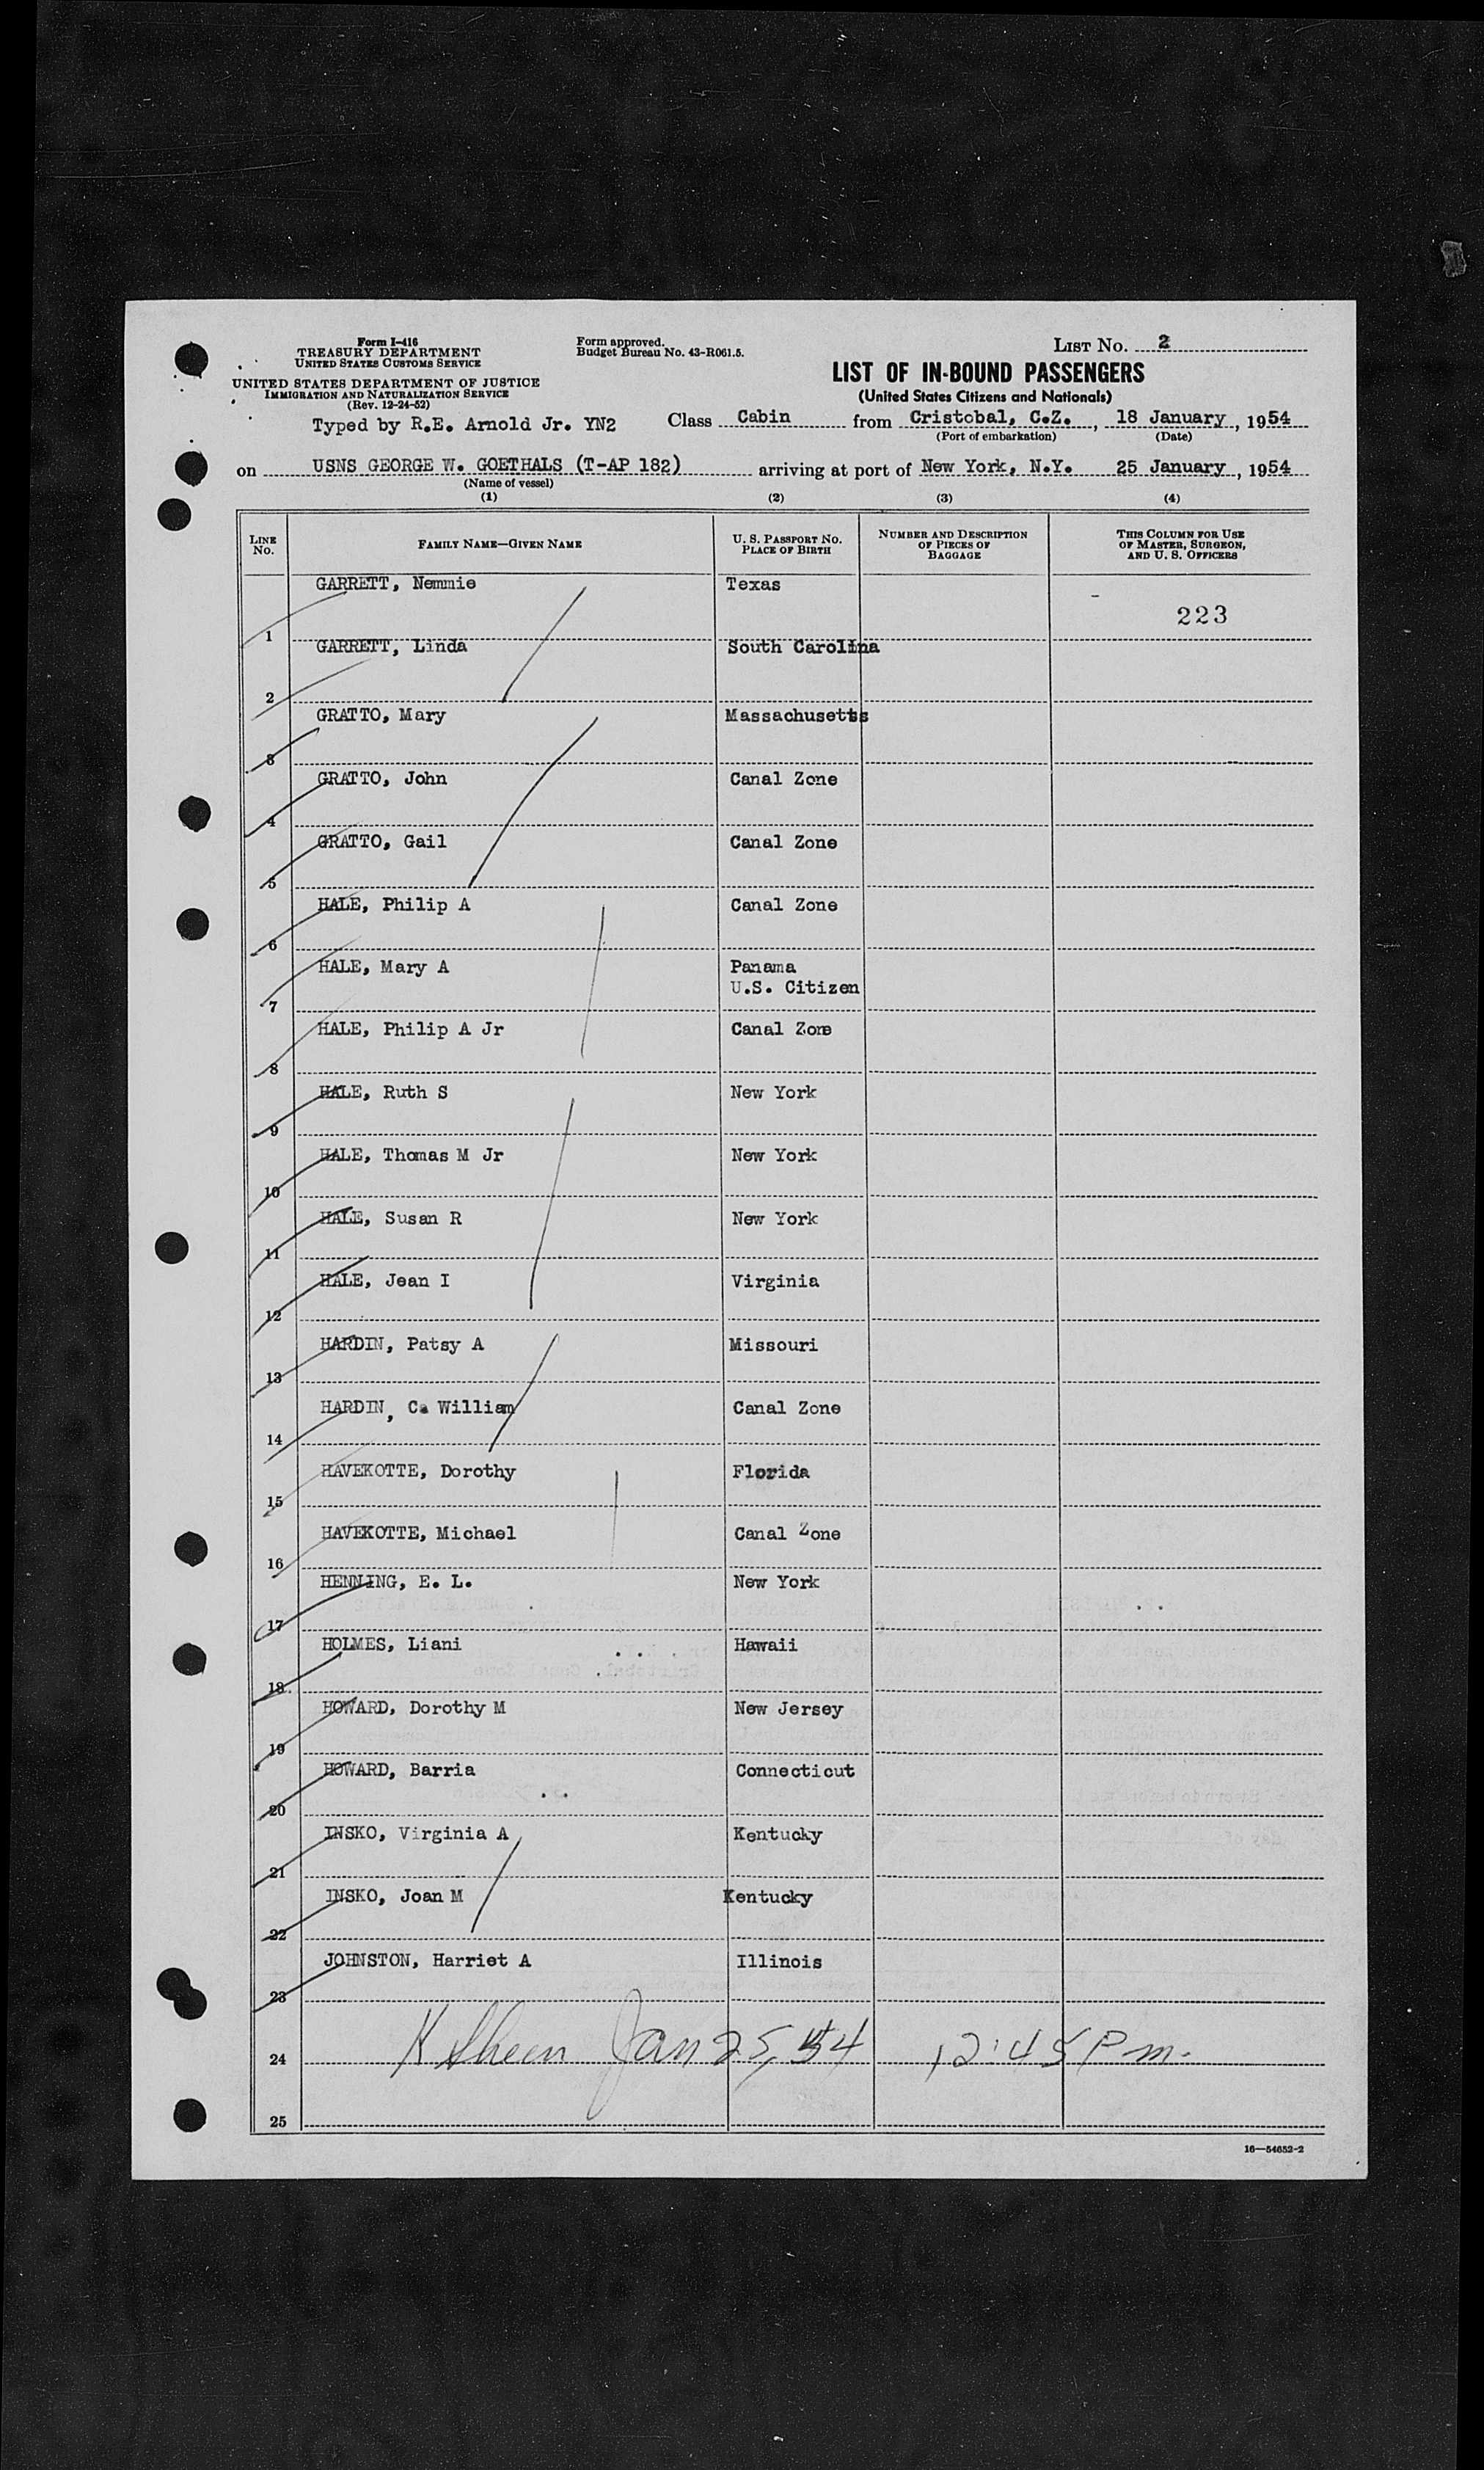 Form I-416
TREASURY DEPARTMENT
UNITED STATES CUSTOMS SERVICE
UNITED STATES DEPARTMENT OF JUSTICE
IMMIGRATION AND NATURALIZATION SERVICE
(Rev. 12-24-52)
Form approved.
Budget Bureau No. 43-R061.5.
LIST NO. 2
LIST OF IN-BOUND PASSENGERS
(United States Citizens and Nationals)
Typed by R.E. Arnold Jr. YN2 Class Cabin from Cristobal, C.Z., 18 January, 1954
(Port of embarkation) (Date)
on USNS GEORGE W. GOETHALS (T-AP 182) arriving at port of New York, N.Y. 25 January, 1954
(Name of vessel)
(1) (2) (3) (4)
LINE NO. FAMILY NAME—GIVEN NAME U. S. PASSPORT NO. PLACE OF BIRTH NUMBER AND DESCRIPTION OF PIECES OF BAGGAGE THIS COLUMN FOR USE OF MASTER, SURGEON, AND U. S. OFFICERS
1 GARRETT, Nemmie Texas 223
2 GARRETT, Linda South Carolina
3 GRATTO, Mary Massachusetts
4 GRATTO, John Canal Zone
5 GRATTO, Gail Canal Zone
6 HALE, Philip A Canal Zone
7 HALE, Mary A Panama
U.S. Citizen
8 HALE, Philip A Jr Canal Zone
9 HALE, Ruth S New York
10 HALE, Thomas M Jr New York
11 HALE, Susan R New York
12 HALE, Jean I Virginia
13 HARDIN, Patsy A Missouri
14 HARDIN, C. William Canal Zone
15 HAVEKOTTE, Dorothy Florida
16 HAVEKOTTE, Michael Canal Zone
17 HENNING, E. L. New York
18 HOLMES, Liani Hawaii
19 HOWARD, Dorothy M New Jersey
20 HOWARD, Barria Connecticut
21 INSKO, Virginia A Kentucky
22 INSKO, Joan M Kentucky
23 JOHNSTON, Harriet A Illinois
24 Jan 25, 54 12:45 P.m.
25
16—54652-2